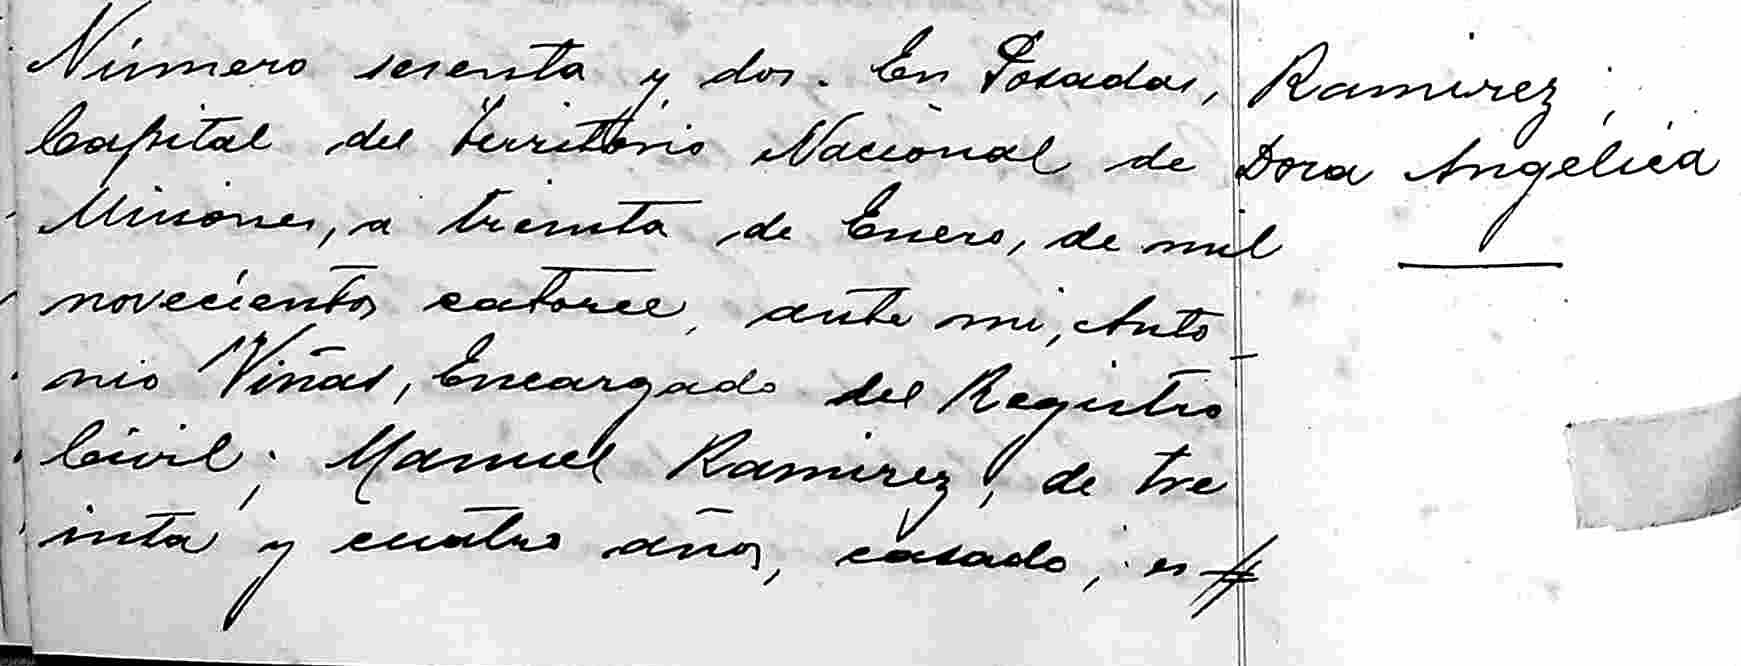 Número sesenta y dos. En Posadas,
Capital del Territorio Nacional de
Misiones, a treinta de Enero, de mil
novecientos catorce, ante mi, Anto
nio Viñas, Encargado del Registro
Civil; Manuel Ramirez, de tre
inta y cuatro años, casado, es #
Ramirez,
Dora Angélica